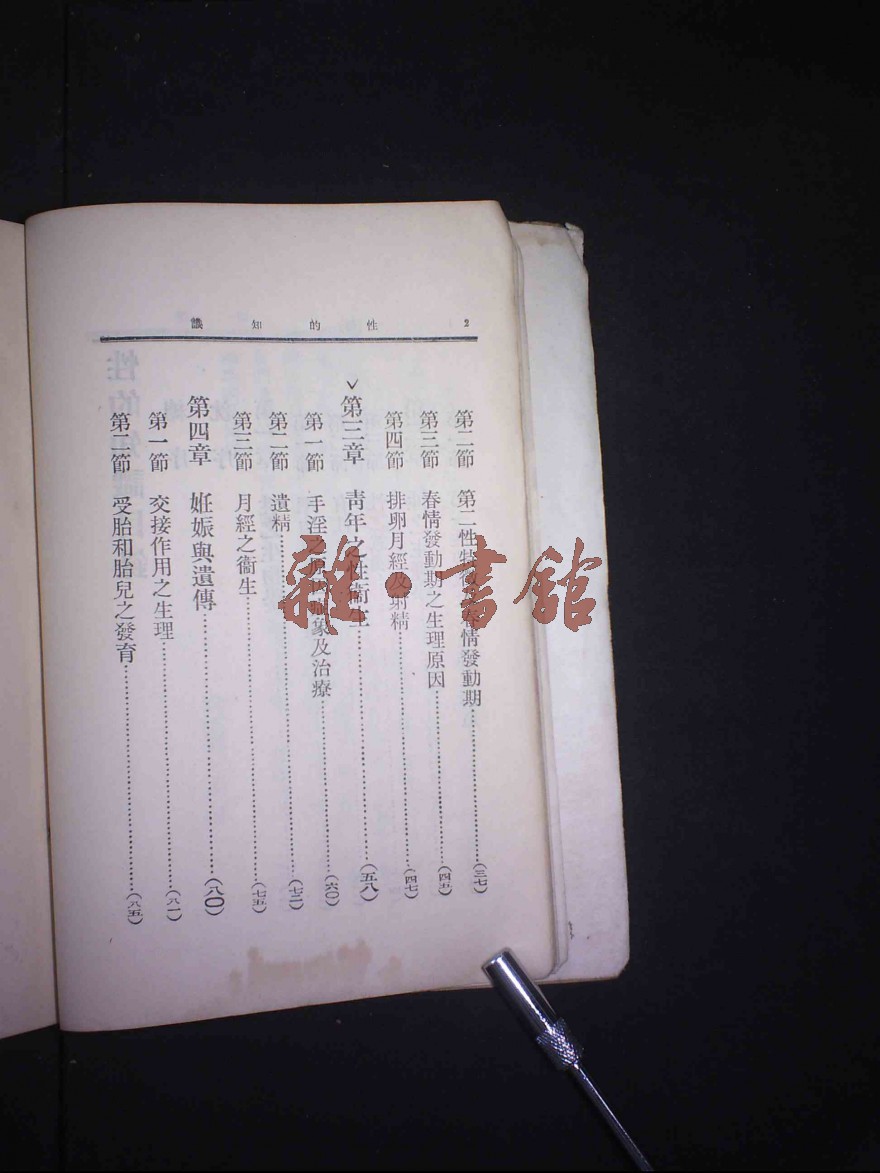 2 性的知識
第二節 第二性特徵 春情發動期(三七)
第三節 春情發動期之生理原因(四五)
第四節 排卵月經及射精(四七)
第三章 青年之性衞生(五八)
第一節 手淫之原因 象及治療(六〇)
第二節 遺精(七二)
第三節 月經之衞生(七五)
第四章 妊娠與遺傳(八〇)
第一節 交接作用之生理(八一)
第二節 受胎和胎兒之發育(八五)
雜·書館